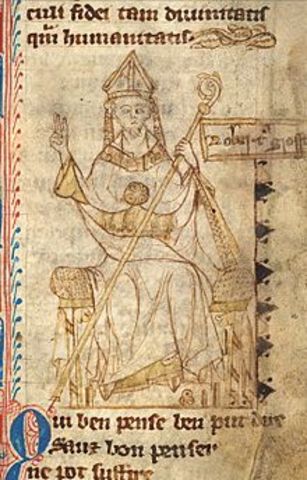 culi fidei tam diuinitatis
qͣm humanitatis
Robert' Gross
Qui ben pense ben put dire
Sanz bon penser
ne pot suffire